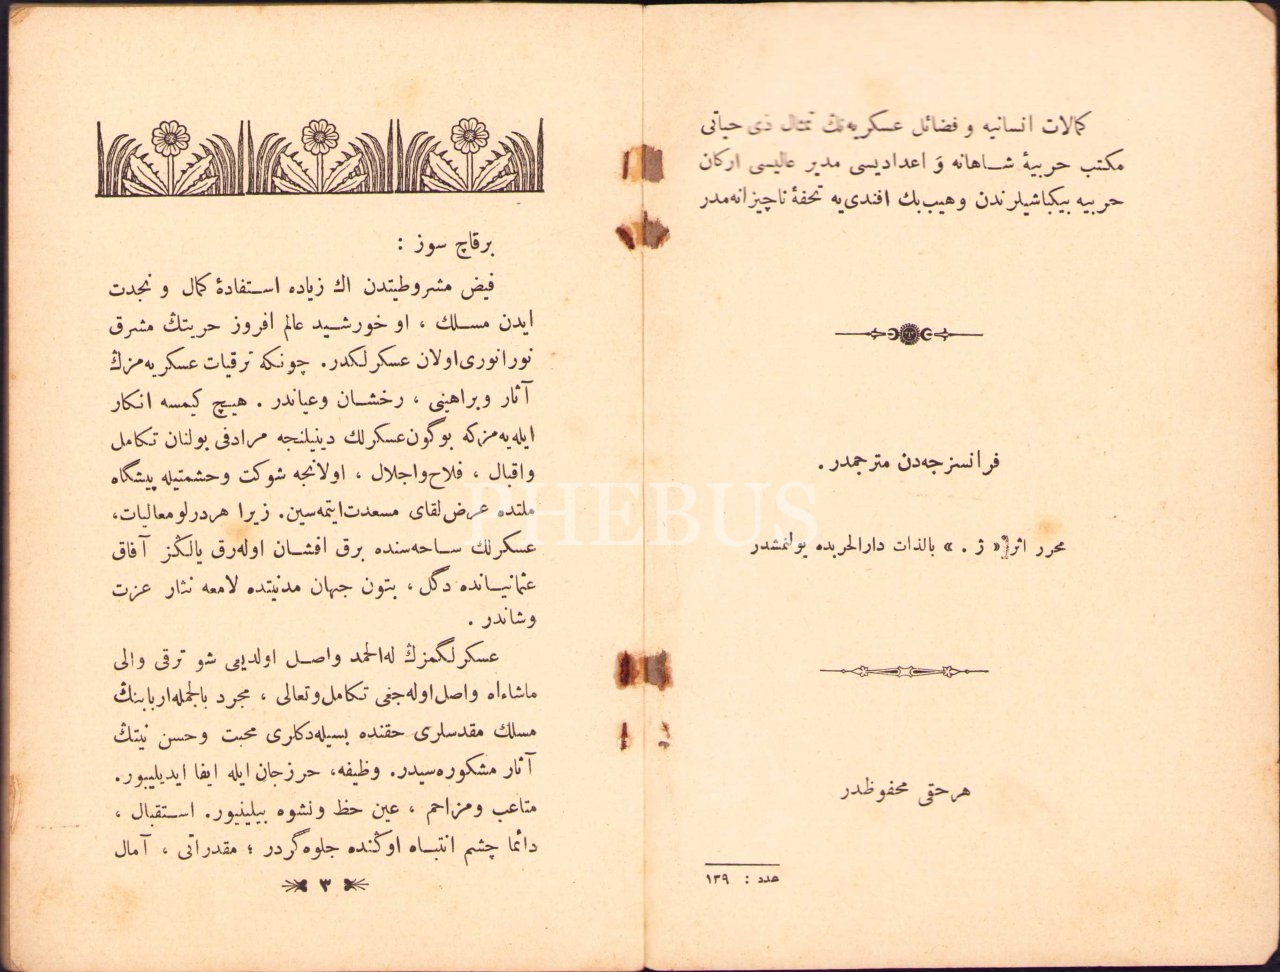 كمالات انسانیه و فضائل عسکریه‌نك تمثال ذی حیاتی
مکتب حربیهٔ شاهانه و اعدادیسی مدیر عالیسی ارکان
حربیه بیکباشیلرندن وهیب بك افندی‌یه تحفهٔ ناچیزانه‌مدر
فرانسزجه‌دن مترجمدر.
محرر اثر « ژ . » بالذات دارالحربده بولنمشدر
هر حقی محفوظدر
عدد : ۱۳۹
برقاچ سوز :
فیض مشروطیتدن اك زیاده استفادهٔ کمال و نجدت
ایدن مسلك ، او خورشید عالم افروز حریتك مشرق
نورانوری اولان عسکرلکدر. چونکه ترقیات عسکریه‌مزك
آثار و براهینی ، رخشان و عیاندر . هیچ کیمسه انکار
ایله‌یه‌مزکه بوگون عسکرلك دینیلنجه مرادفی بولنان تکامل
واقبال ، فلاح واجلال ، اولانجه شوکت وحشمتیله پیشگاه
ملتده عرض لقای مسعدت ایتمه‌سین. زیرا هر درلو معالیات،
عسکرلك ساحه‌سنده برق افشان اوله‌رق یالکز آفاق
عثمانیانده دگل ، بتون جهان مدنیتده لامعه نثار عزت
وشاندر .
عسکرلگمزك له‌الحمد واصل اولدیغی شو ترقی والی
ماشاءاه واصل اوله‌جغی تکامل وتعالی ، مجرد بالجمله اربابنك
مسلك مقدسلری حقنده بسیله‌دکلری محبت وحسن نیتك
آثار مشکوره‌سیدر. وظیفه، حرزجان ایله ایفا ایدیلییور.
متاعب ومزاحم ، عین حظ ونشوه بیلینیور. استقبال ،
دائما چشم انتباه اوکنده جلوه‌گردر ؛ مقدراتی ، آمال
۳
PHEBUS